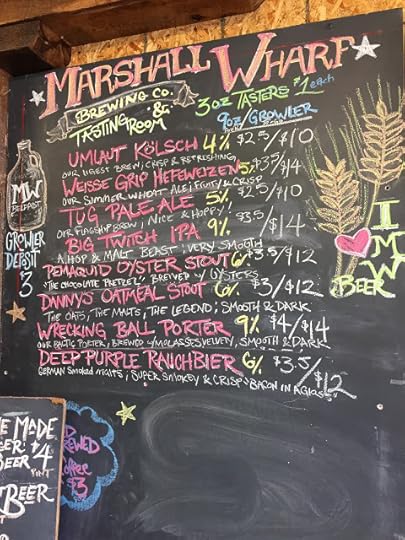 MARSHALL WHARF
BREWING CO. &
TASTING ROOM
3oz TASTERS $1 each
9oz/GROWLER
UMLAUT KÖLSCH 4% $2.5/$10
OUR LIGHTEST BREW; CRISP & REFRESHING
WEISSE GRIP HEFEWEIZEN 5% $3.5/$14
OUR SUMMER WHEAT ALE; FRUITY & CRISP
TUG PALE ALE 5% $2.5/$10
OUR FLAGSHIP BREW; NICE & HOPPY!
BIG TWITCH IPA 9% $3.5/$14
A HOP & MALT BEAST; VERY SMOOTH
PEMAQUID OYSTER STOUT 6% $3.5/$12
"THE CHOCOLATE PRETZEL"; BREWED W/ OYSTERS
DANNY'S OATMEAL STOUT 6% $3/$12
THE OATS, THE MALTS, THE LEGEND; SMOOTH & DARK
WRECKING BALL PORTER 9% $4/$14
OUR BALTIC PORTER; BREWED W/MOLASSES, VELVETY, SMOOTH & DARK
DEEP PURPLE RAUCHBIER 6% $3.5/$12
GERMAN SMOKED MALTS; SUPER SMOKEY & CRISP - BACON IN A GLASS
MW
BELFAST
GROWLER
DEPOSIT
3
I
MW
BEER
E MADE
BEER: $4
PINT
BEER
BREWED
Coffee
$3